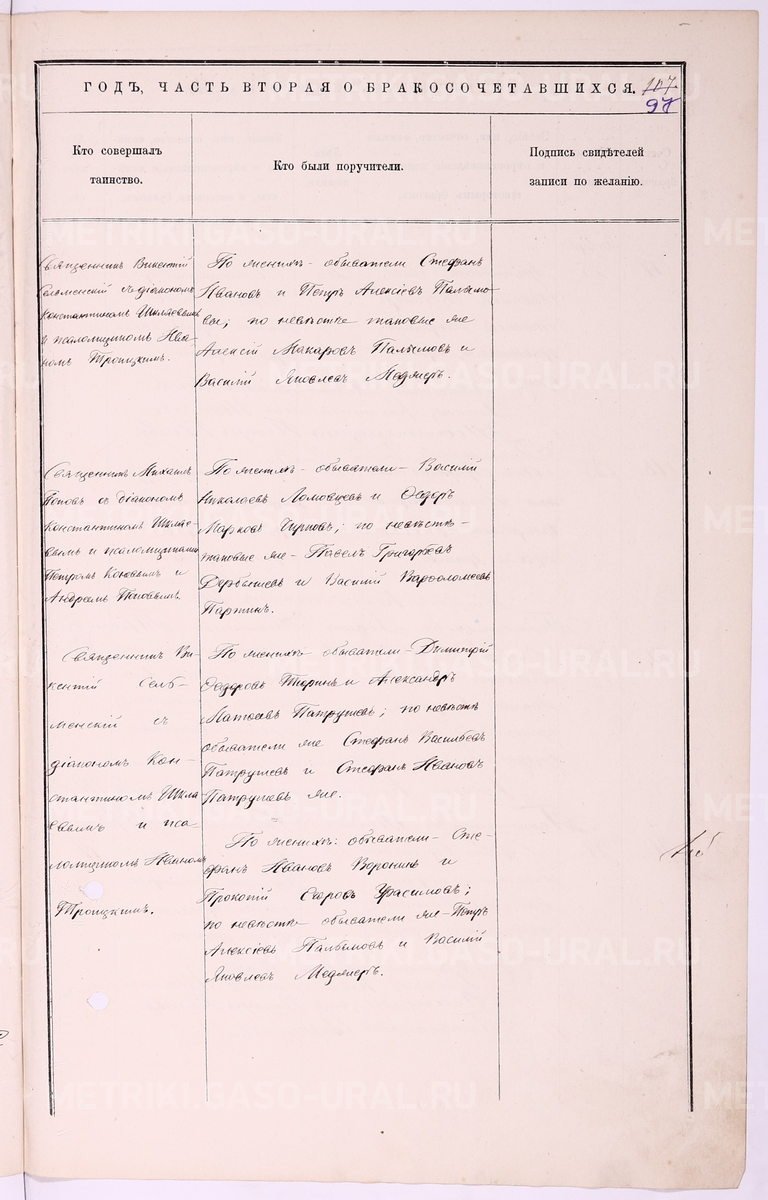 ГОДЪ, ЧАСТЬ ВТОРАЯ О БРАКОСОЧЕТАВШИХСЯ.
107.
97
Кто совершалъ
таинство.
Кто были поручители.
Подпись свидѣтелей
записи по желанію.
Священникъ Викентій
Сельменскій съ діакономъ
Константиномъ Шкляевымъ
и псаломщикомъ Ива-
номъ Троицкимъ.
По женихѣ - обыватели Стефанъ
Ивановъ и Петръ Алексіевъ Пальмо-
вы; по невѣстѣ таковые же
Алексій Макаровъ Пальмовъ и
Василій Яковлевъ
Священникъ Михаилъ
Поповъ съ діакономъ
Константиномъ Шкляе-
вымъ и псаломщиками
Петромъ и
Андреемъ Поповымъ.
По женихѣ - обыватели - Василій
Николаевъ Ломовцевъ и Ѳеодоръ
Марковъ по невѣстѣ -
таковые же - Павелъ Григорьевъ
Дерябинъ и Василій Варѳоломеевъ
Партинъ.
Священникъ Ви-
кентій Сель-
менскій съ
діакономъ Кон-
стантиномъ Шкля
евымъ и пса-
ломщикомъ Иваномъ
Троицкимъ.
По женихѣ обыватели - Димитрій
Ѳеодоровъ Тюринъ и Александръ
Матѳеевъ Патрушевъ; по невѣстѣ
обыватели же Стефанъ Васильевъ
Патрушевъ и Стефанъ Ивановъ
Патрушевъ же.
По женихѣ: обыватели - Сте-
фанъ Ивановъ Воронинъ и
Прокопій Егоровъ
по невѣстѣ обыватели же - Петръ
Алексіевъ Пальмовъ и Василій
Яковлевъ
METRIKI.GASO-URAL.RU